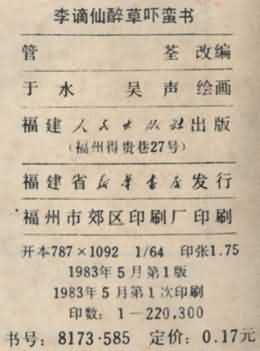 李谪仙醉草吓蛮书
管 荃 改编
于水 吴声 绘画
福建人民出版社出版
(福州得贵巷27号)
福建省新华书店发行
福州市郊区印刷厂印刷
开本787×1092 1/64 印张1.75
1983年5月第1版
1983年5月第1次印刷
印数:1—220,300
书号:8173·585 定价:0.17元